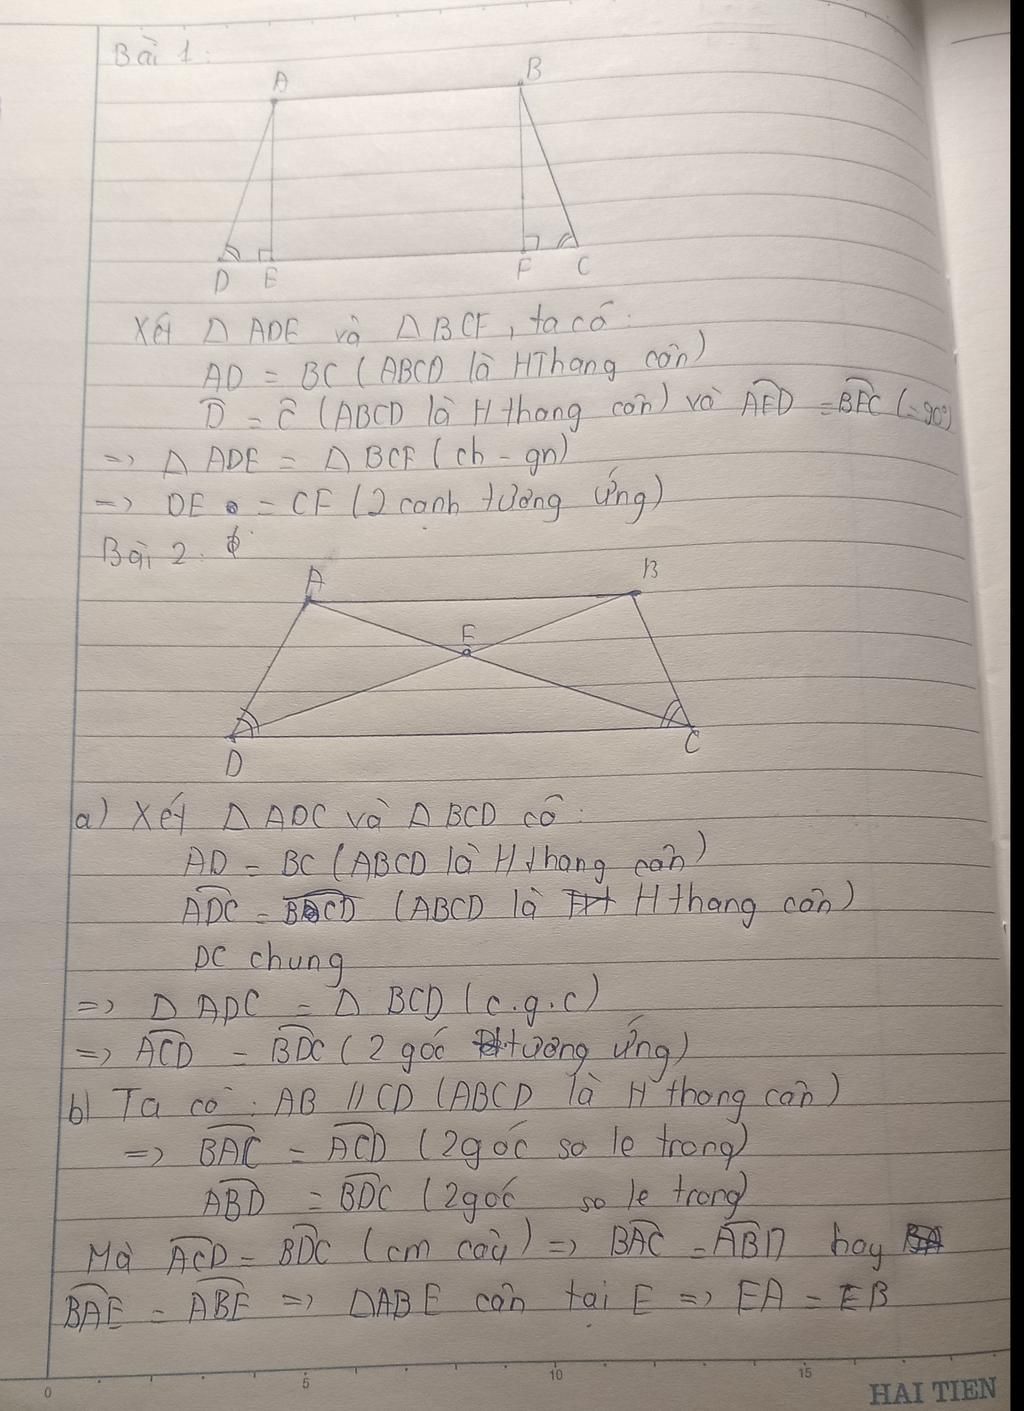 Bài 1:
A
B
D E F C
Xét Δ ADE và Δ BCF, ta có:
AD = BC (ABCD là HThang cân)
D̂ = Ĉ (ABCD là Hthang cân) và AED = BFC (=90°)
=> Δ ADE = Δ BCF (ch - gn)
=> DE = CF (2 cạnh tương ứng)
Bài 2:
A
B
E
D C
a) Xét Δ ADC và Δ BCD có:
AD = BC (ABCD là Hthang cân)
ADC = BCD (ABCD là Hthang cân)
DC chung
=> Δ ADC = Δ BCD (c.g.c)
=> ACD = BDC (2 góc tương ứng)
b) Ta có: AB // CD (ABCD là Hthang cân)
=> BAC = ACD (2 góc so le trong)
ABD = BDC (2 góc so le trong)
Mà ACD = BDC (cm câu) => BAC = ABD hay
BAE = ABE => ΔABE cân tại E => EA = EB
0 5 10 15
HAI TIEN